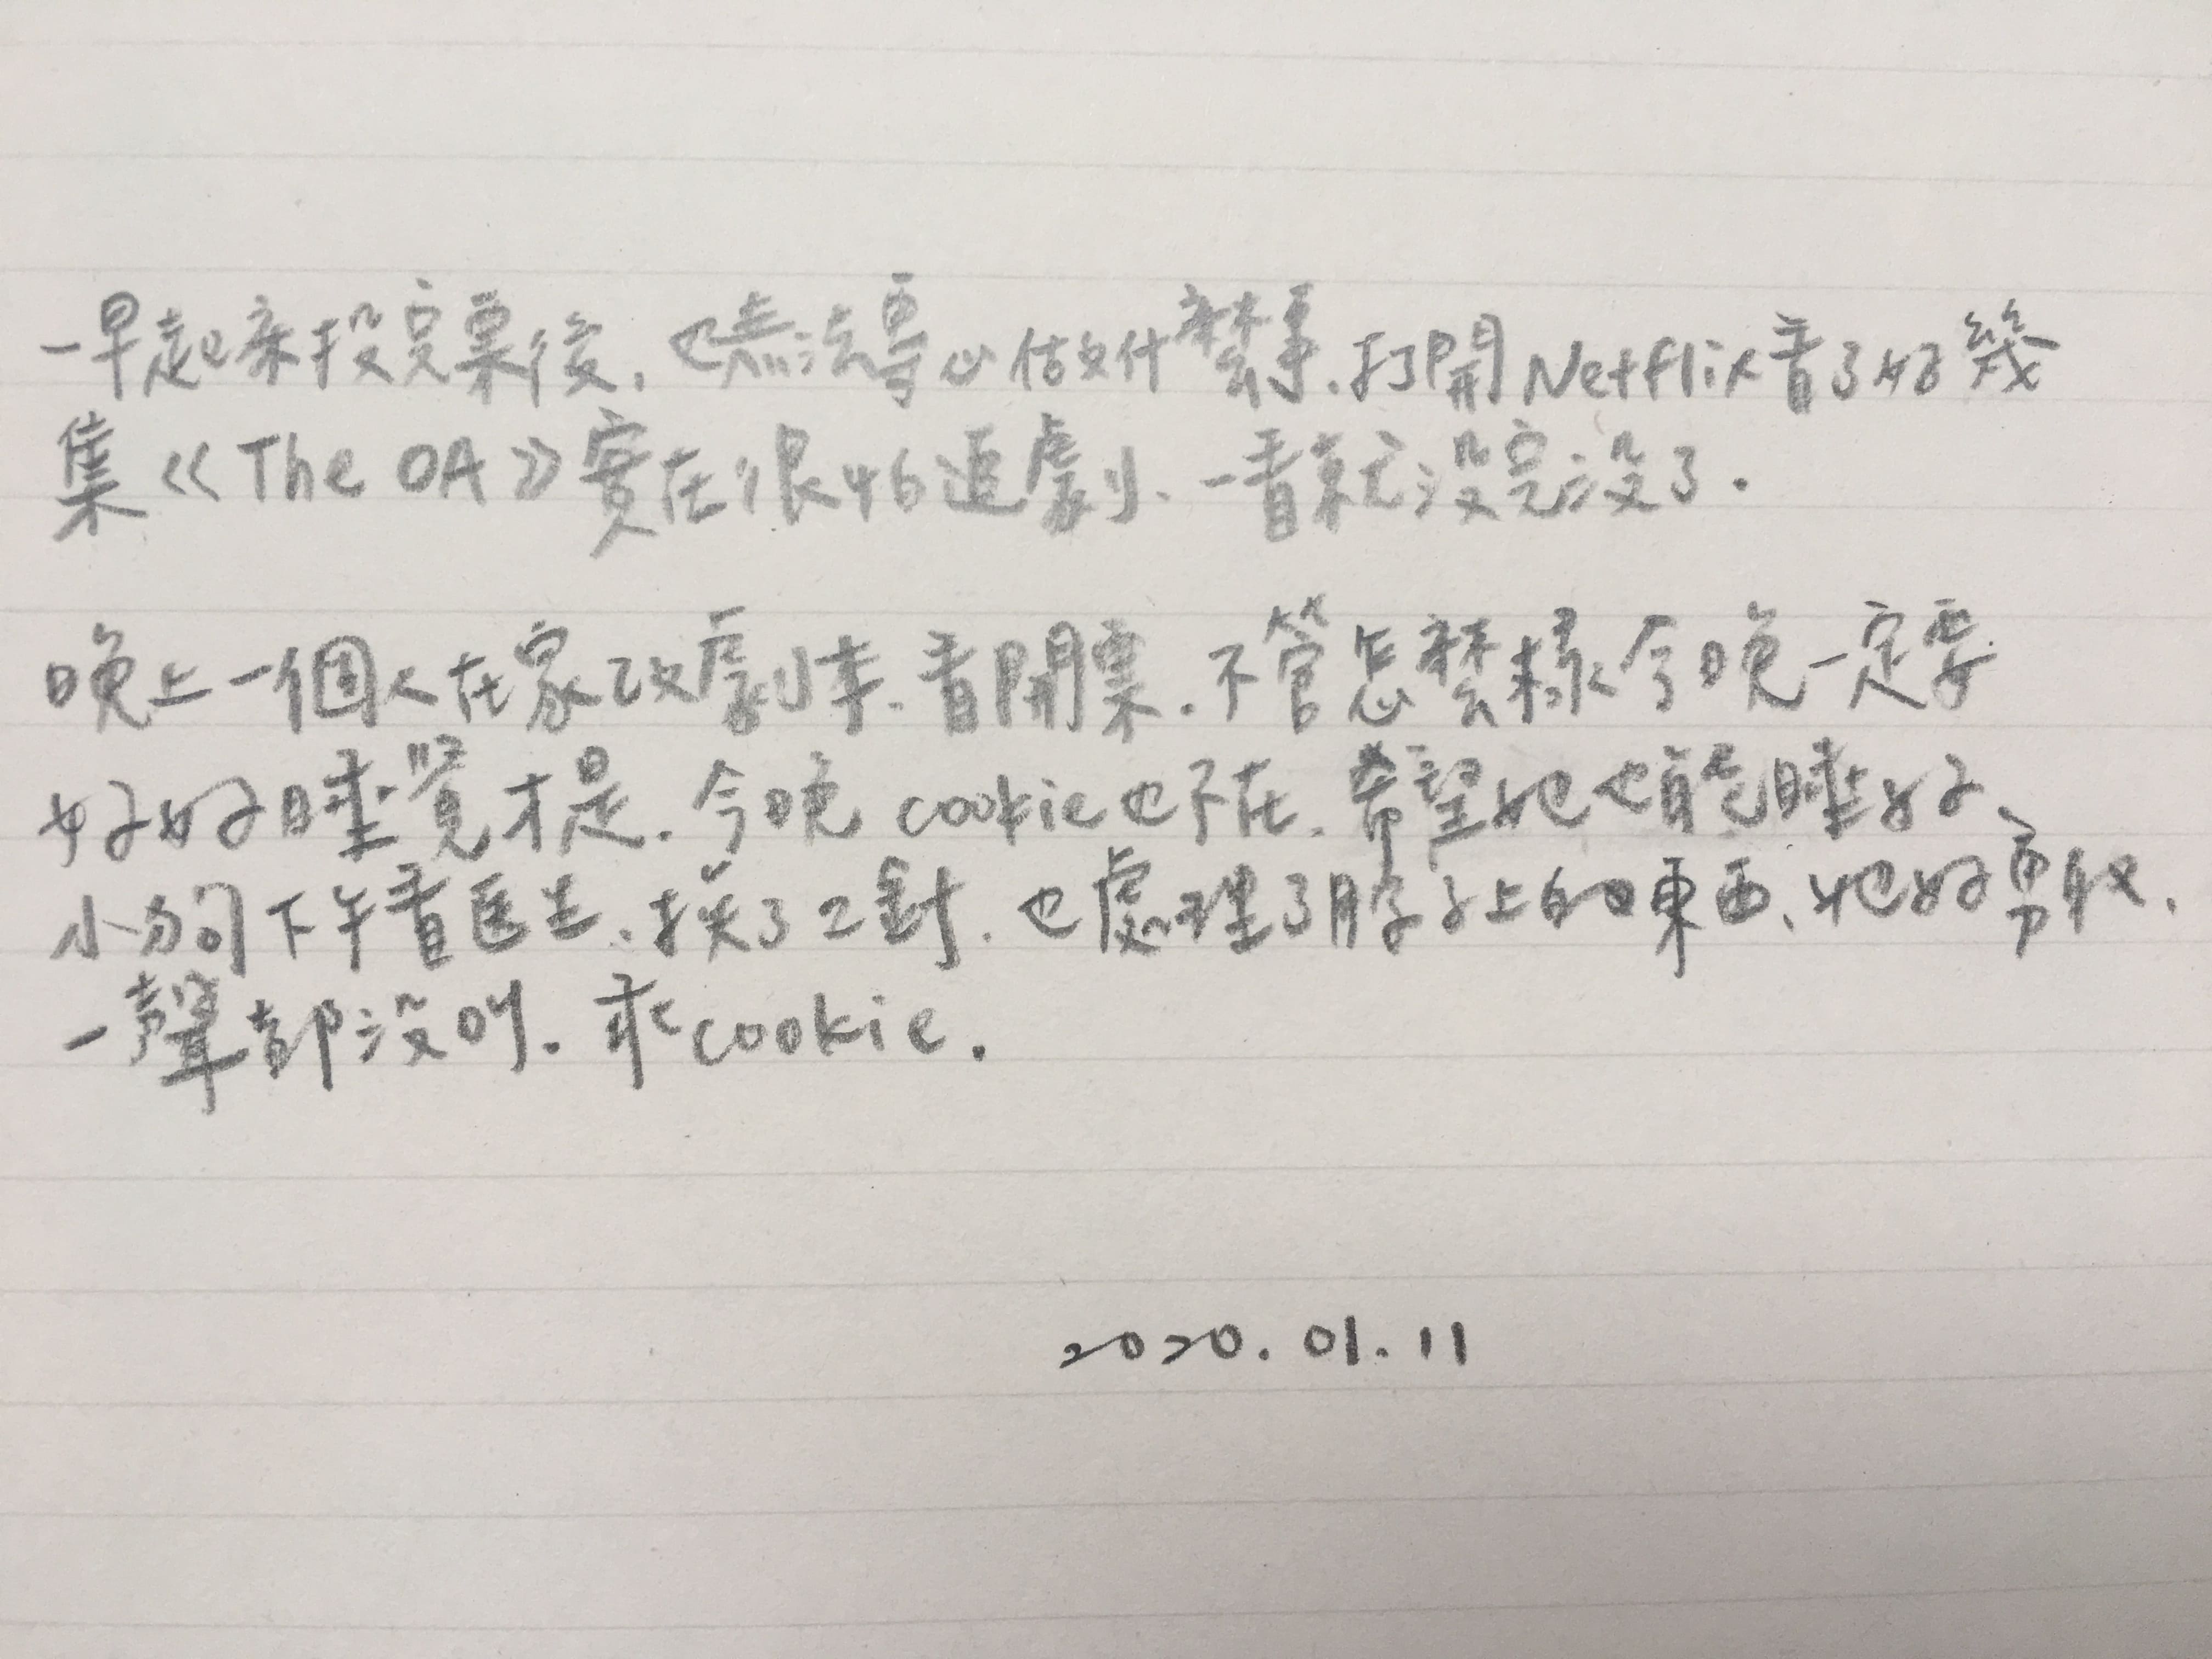 一早起來投完票後，也無法專心做什麼事．打開Netflix看了好幾
集《The OA》實在很怕追劇、一看就沒完沒了．
晚上一個人在家改劇本．看開票．不管怎麼樣今晚一定要
好好睡覺才是．今晚 cookie也不在．希望她也能睡好、
小狗下午看医生．挨了2針．也處理了脖子上的東西、她好勇敢．
一聲都沒叫．乖cookie．
2020.01.11